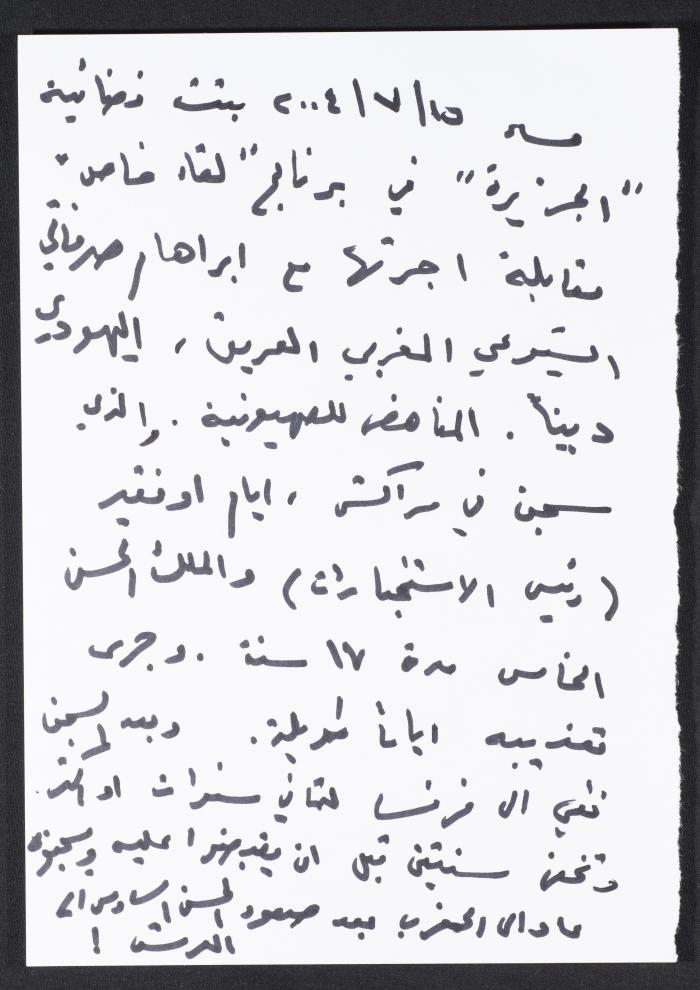 مساء ١٥/٧/٢٠٠٤ بثت فضائية
"الجزيرة" في برنامج "لقاء خاص"
مقابلة اجرتها مع ابراهام صرفاتي
الشيوعي المغربي العريق، اليهودي
ديناً. المناهض للصهيونية. والذي
سجن في مراكش، ايام اوفقير
(رئيس الاستخبارات) والملك الحسن
الخامس مدة ١٧ سنة. وجرى
تعذيبه اياماً طويلة. وبعد السجن
نفي الى فرنسا لثماني سنوات او اكثر.
وتخفى سنتين قبل ان يقبضوا عليه ويسجنوه
عاد الى المغرب بعد صعود الحسن السادس الى
العرش!